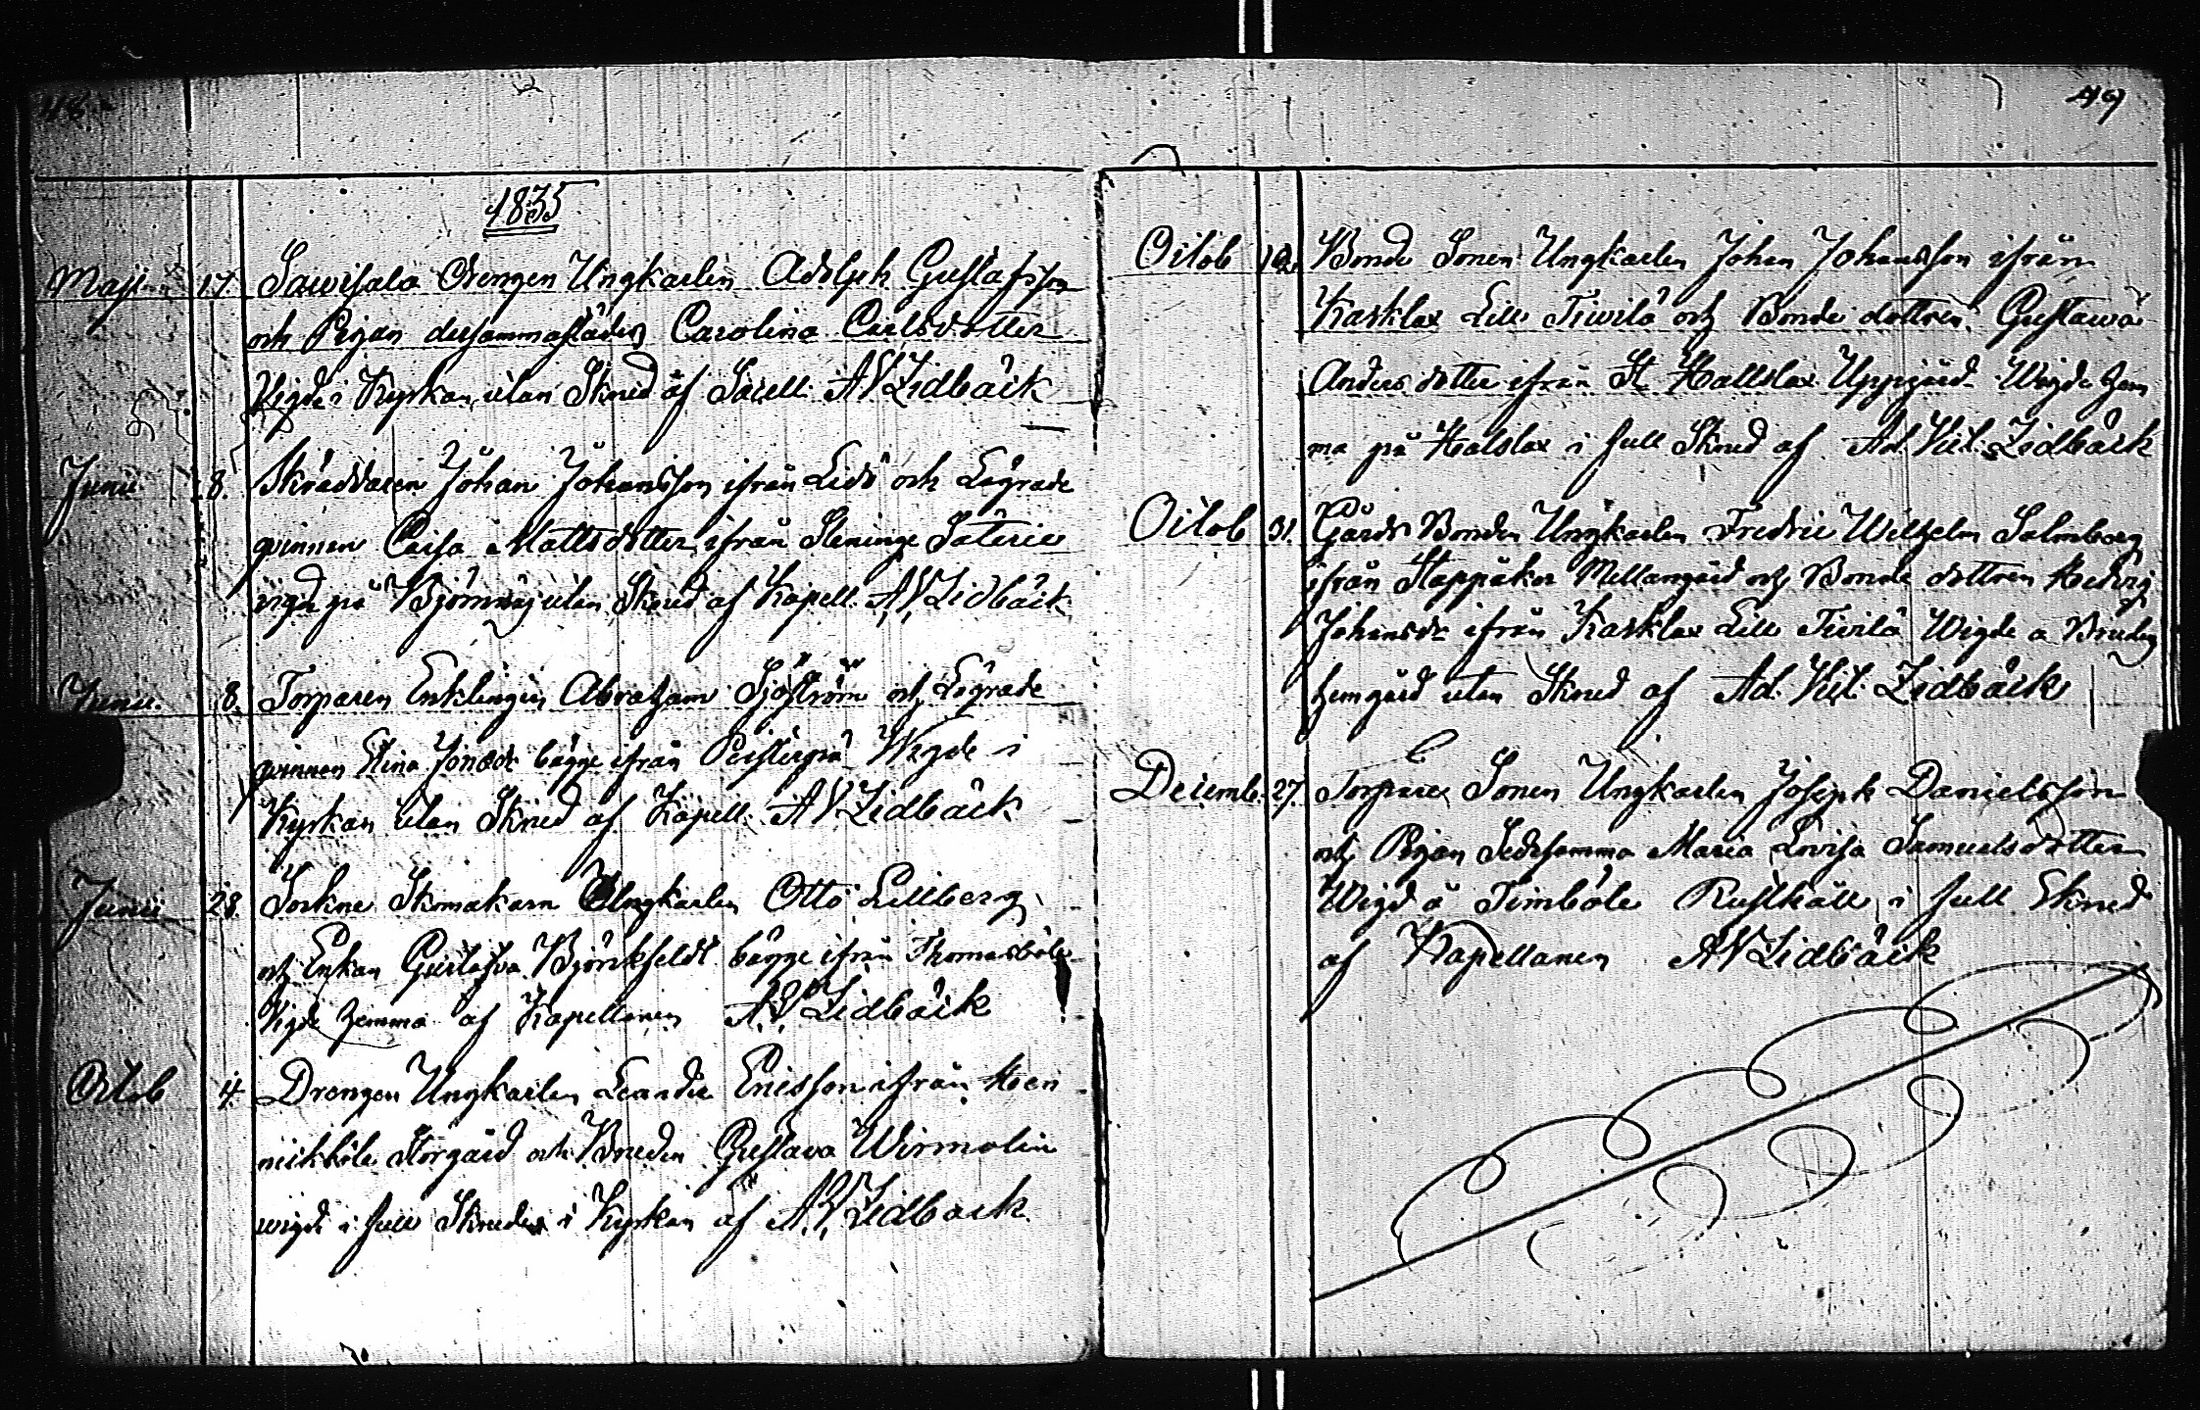 48
1835
Maji 17. Sawisalo Drengen Ungkarlen Adolph Gustafsson
och Pigan dersammastädes Carolina Carlsdotter
Vigde i Kyrkan utan Skrud af Sacell. A V Lidbäck
Junii 8. Skräddaren Johan Johansson ifrån Lidö och Lägrade
qvinnan Caisa Mattsdotter ifrån Steninge Säterie
vigde på Björnnäs utan Skrud af Kapell. A. V. Lidbäck
Junii. 8. Torparen Enklingen Abraham Sjöström och Lägrade
qvinnan Stina Jonasdr bägge ifrån Wigde i
Kyrkan utan Skrud af Kapell. A V Lidbäck
Junii 28. Sockne Skomakarn Ungkarlen Otto Lillberg
och Enkan Gustafva Björkfeldt bägge ifrån Thomasböle
Vigde hemma af Kapellanen A. V. Lidbäck
Octob 4. Drengen Ungkarlen Leander Ericsson ifrån Hen
nickböle Storgård och Bruden Gustava Wirmolin
wigde i full Skrud i Kyrkan af A. V. Lidback
49
Octob 12. Bonde Sonen Ungkarlen Johan Johansson ifrån
Kasklax Lill Tivilä och Bonde dottren Gustawa
Anders dotter ifrån St Hallslax Uppgård Wigde hem
ma på Halslax i full Skrud af Ad. Vil. Lidbäck
Octob 31. Gårds Bonden Ungkarlen Fredric Wilhelm Salmberg
ifrån Stappåker Mellangård och Bonde dottren Hedvig
Johansdr ifrån Kasklax Lill Tivilä Wigde a Brudens
hemgård utan Skrud af Ad. Vil. Lidbäck
Decemb. 27. Torpare Sonen Ungkarlen Joseph Danielsson
och Pigan Maria Lovisa Samuelsdotter
Wigd å Timböle Rusthåll i full Skrud
af Kapellanen A V Lidbäck